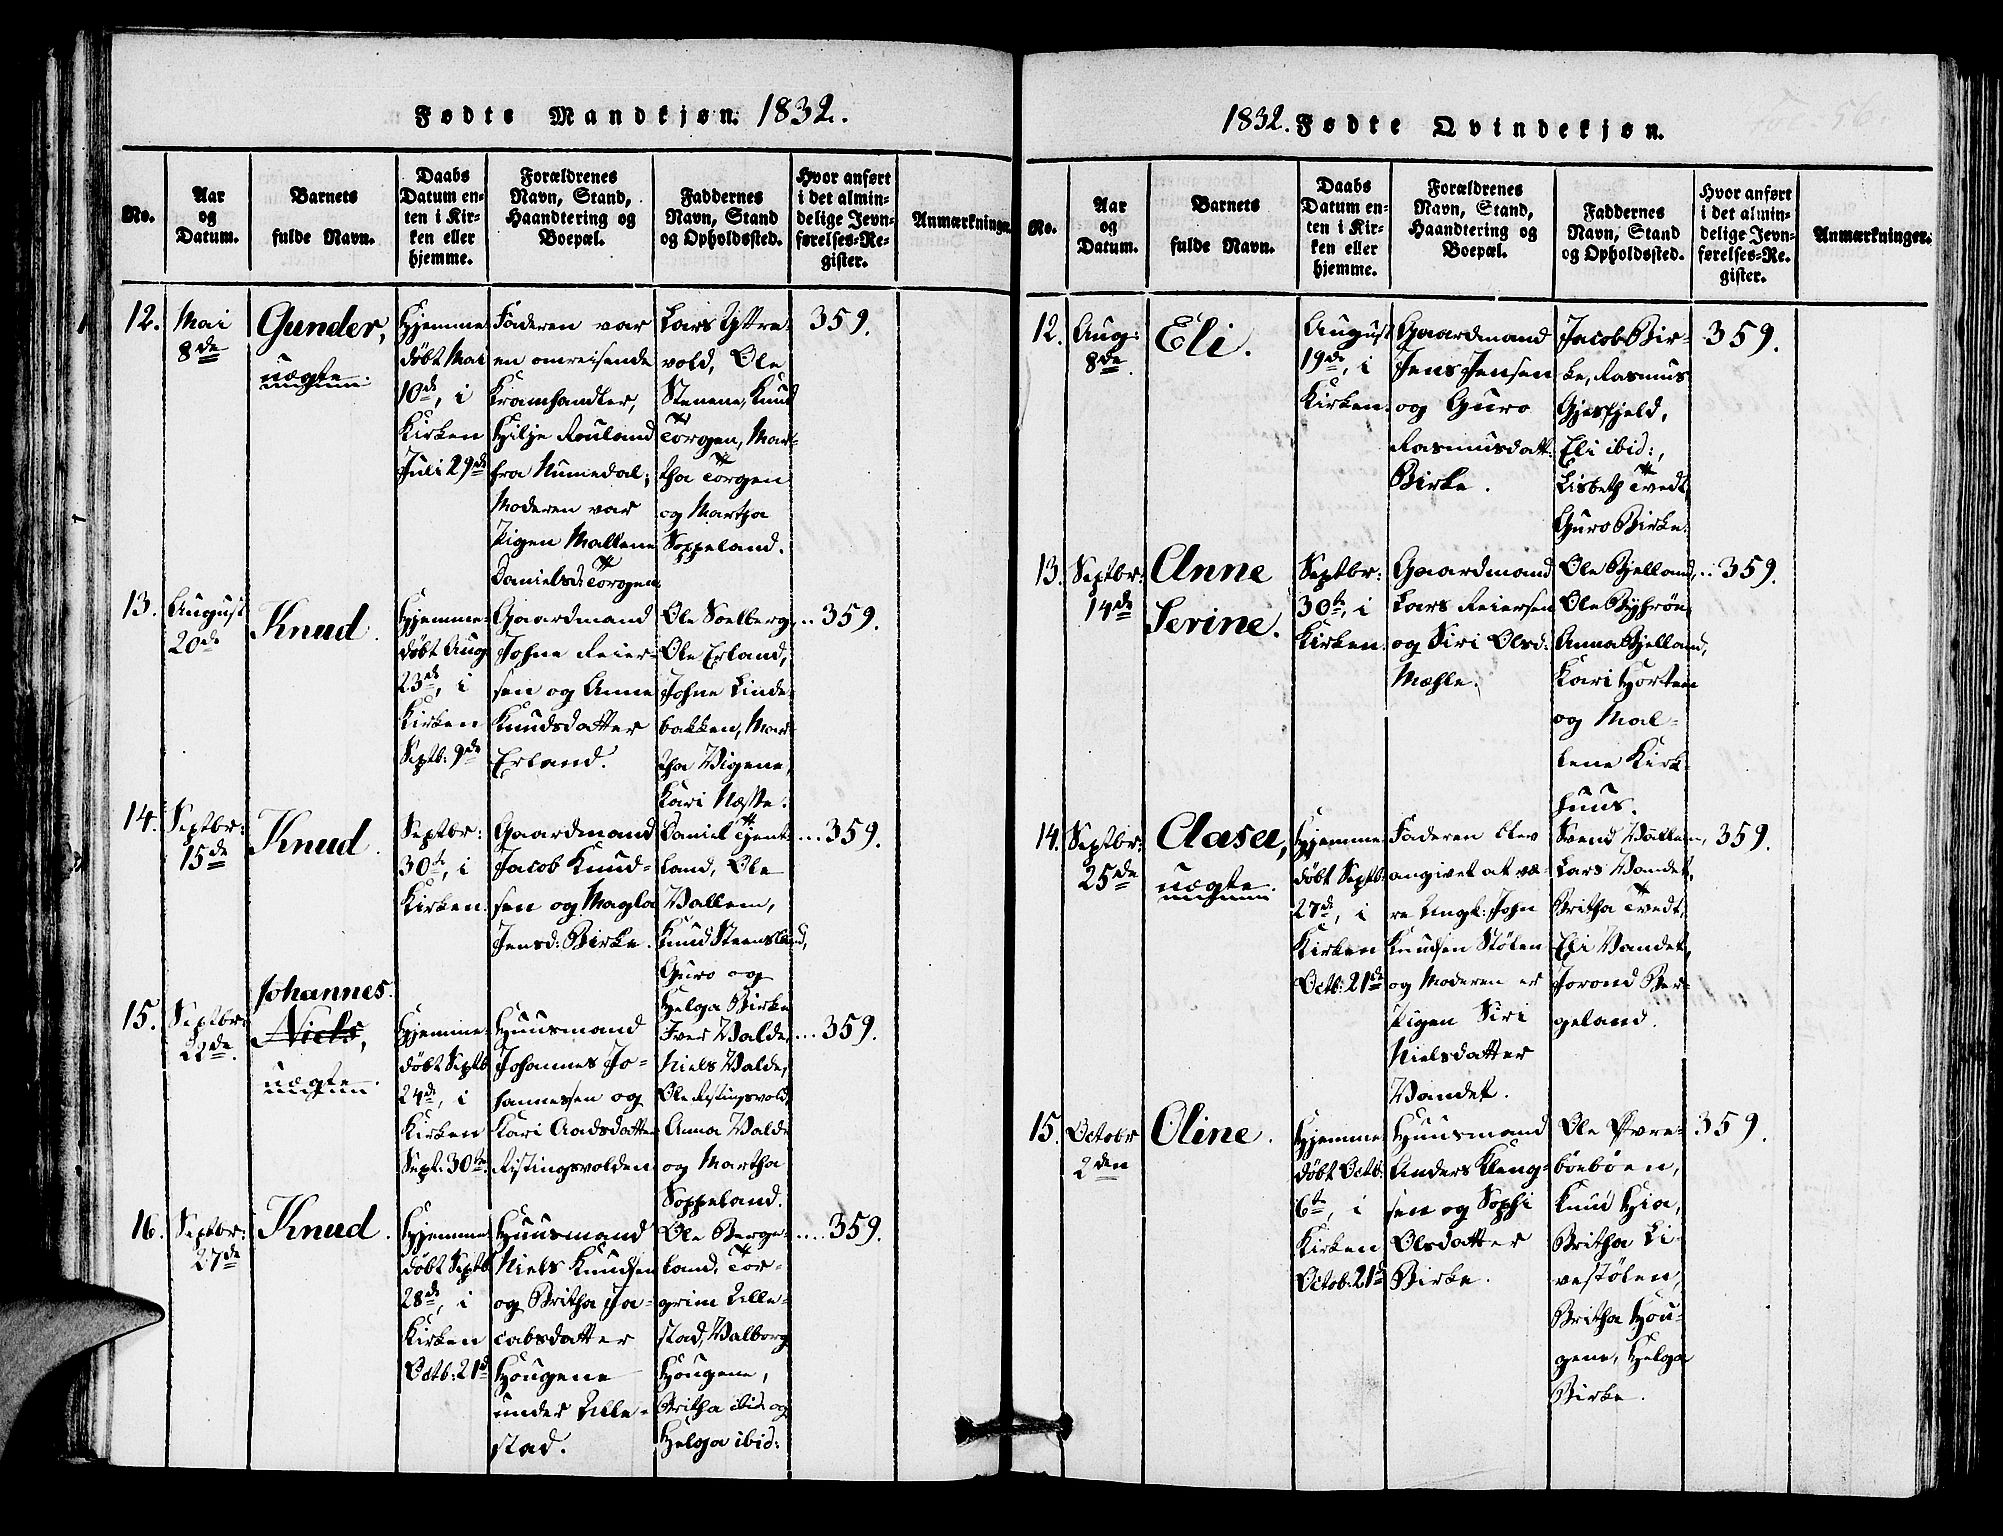 Fødte Mandkjøn. 1832.
No.
Aar
og
Datum.
Barnets
fulde Navn.
Daabs
Datum en-
ten i Kir-
ken eller
hjemme.
Forældrenes
Navn, Stand,
Haandtering og
Boepæl.
Faddernes
Navn, Stand
og Opholdssted.
Hvor anført
i det almin-
delige Jevn-
førelses-Re-
gister.
Anmærkninger.
12.
Mai
8de
Gunder,
uægte.
Hjemme
døbt Mai
10de, i
Kirken
Juli 29de
Faderen var
en omreisende
Kramhandler,
Hilje Rouland
fra Numedal;
Moderen var
Pigen Mallene
Danielsd: Torgen
Lars Yttre-
vold, Ole
Stenene, Knud
Torgen, Mar-
tha Torgen
og Martha
Soppeland.
359.
13.
August
20de
Knud.
Hjemme-
døbt Aug
23de, i
Kirken
Septb: 9de
Gaardmand
Johne Reier-
sen og Anne
Knudsdatter
Erland.
Ole Soelberg,
Ole Erland,
Johne Linde-
bakken, Mar-
tha Vigene,
Kari Næsse.
359.
14.
Septbr:
15de
Knud.
Septbr:
30te, i
Kirken.
Gaardmand
Jacob Knud-
sen og Magla
Jensd: Birke.
Daniel Tjent-
land, Ole
Vallem,
Knud Steensland,
Guro og
Helga Birke
359.
15.
Septbr:
22de.
Johannes.
Niels,
uægte.
Hjemme-
døbt Septb
24de, i
Kirken
Sept: 30te.
Huusmand
Johannes Jo-
hannessen og
Kari Aadsdatter
Ristingsvolden
Iver Valde,
Niels Valde,
Ole Ristingsvold,
Anna Valde
og Martha
Soppeland.
359.
16.
Septbr:
27de
Knud.
Hjemme-
døbt Septb
28de, i
Kirken
Octb: 21de
Huusmand
Niels Knudsen
og Britha Ja-
cobsdatter
Hougene
under Lille-
stad.
Ole Berge-
land, Tor-
grim Lille-
stad, Valborg
Hougene,
Britha ibid: og
Helga ibid:
359.
1832. Fødte Qvindekjøn.
56.
No.
Aar
og
Datum.
Barnets
fulde Navn.
Daabs
Datum en-
ten i Kir-
ken eller
hjemme.
Forældrenes
Navn, Stand,
Haandtering og
Boepæl.
Faddernes
Navn, Stand
og Opholdssted.
Hvor anført
i det almin-
delige Jevn-
førelses-Re-
gister.
Anmærkninger.
12.
Aug:
8de.
Eli.
August
19de, i
Kirken.
Gaardmand
Jens Jensen
og Guro
Rasmusdatt:
Birke.
Jacob Bir-
ke, Rasmus
Gjesfjeld,
Eli ibid:,
Lisbeth Tvedt,
Guro Birke.
359.
13.
Septbr:
14de
Anne
Serine.
Septbr:
30te, i
Kirken.
Gaardmand
Lars Reiersen
og Siri Olsd:
Mæhle.
Ole Bjelland,
Anna Bjelland,
Kari Horten
og Mal-
lene Kirk-
huus.
359.
14.
Septbr:
25de
Clasea,
uægte.
Hjemme-
døbt Septb:
27de, i
Kirken
Octb: 21de
Faderen blev
angivet at væ-
re Ungk: John
Knudsen Stölen
og Moderen er
Pigen Siri
Nielsdatter
Vandet.
Svend Vallem,
Lars Vandet,
Britha Tvedt,
Eli Vandet,
Jorond Ber-
geland.
359.
15.
Octobr
2den
Oline.
Hjemme-
døbt Octb:
6te, i
Kirken
Octob: 21de
Huusmand
Anders Kleng-
sen og Sophi
Olsdatter
Birke.
Knud Hia,
Britha Li-
vestölen,
Britha Hou-
gene, Helga
Birke.
359.